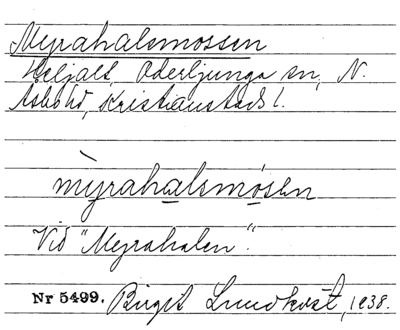 Myrahalsmossen
Heljalt, Oderljunga sn, N.
Åsbo hd, Kristianstads l.
mỳrahalsmósen
Vid "Myrahalsen".
Nr 5499. Birgit Lundkvist, 1938.